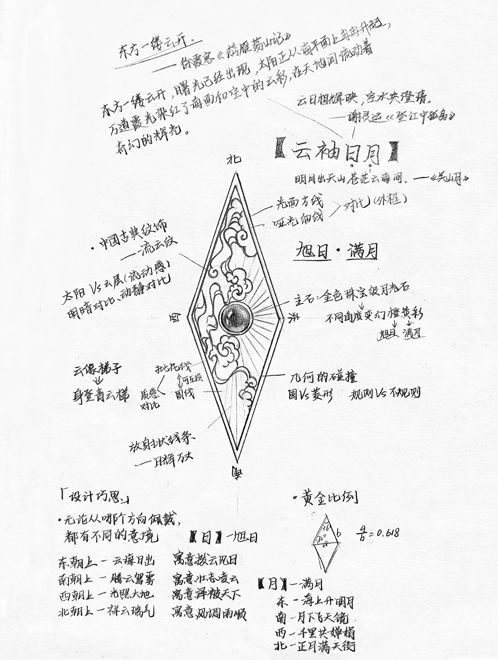 东方一缕云开.
——徐霞客《游雁荡山记》
东方一缕云开，曙光已经出现，太阳正从海平面上冉冉升起，
万道霞光染红了海面和空中的云彩，在天地间流动着
奇幻的辉光。
云日相辉映，空水共澄鲜。
——谢灵运《登江中孤屿》
【云袖日月】
明月出天山 苍茫云海间。——《关山月》
北
光面方线
哑光细线
对比(外框)
·中国古典纹饰
——流云纹
旭日·满月
太阳 Vs 云层(流动感)
明暗对比、动静对比
主石:金色珠宝级月光石
不同角度变幻
旭日 满月
西
东
云像梯子
身登青云梯
直线
对比
几何的碰撞
圆Vs菱形 规则Vs不规则
放射状线条
南
「设计巧思」
·无论从哪个方向佩戴，
都有不同的意境
【日】一旭日
东朝上一云海日出 寓意拨云见日
南朝上一腾云驾雾 寓意壮志凌云
西朝上一光照大地 寓意泽被天下
北朝上一祥云瑞气 寓意风调雨顺
·黄金比例
a b
a/b=0.618
【月】一满月
东一海上升明月
南一月下飞天镜
西一千里共婵娟
北一正月满天街